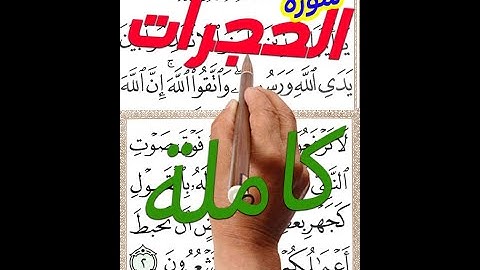 سورة
الحجرات
يَدَيِ اللَّهِ وَرَسُو وَاتَّقُوا اللَّهَ ۚ إِنَّ اللَّهَ
كاملة
لَا تَرْفَعُو فَوْقَ صَوْتِ
النَّبِ بِالْقَوْلِ
كَجَهْرِ بَعْضِ أَن تَحْبَطَ
أَعْمَالُكُمْ تَشْعُرُونَ ٢